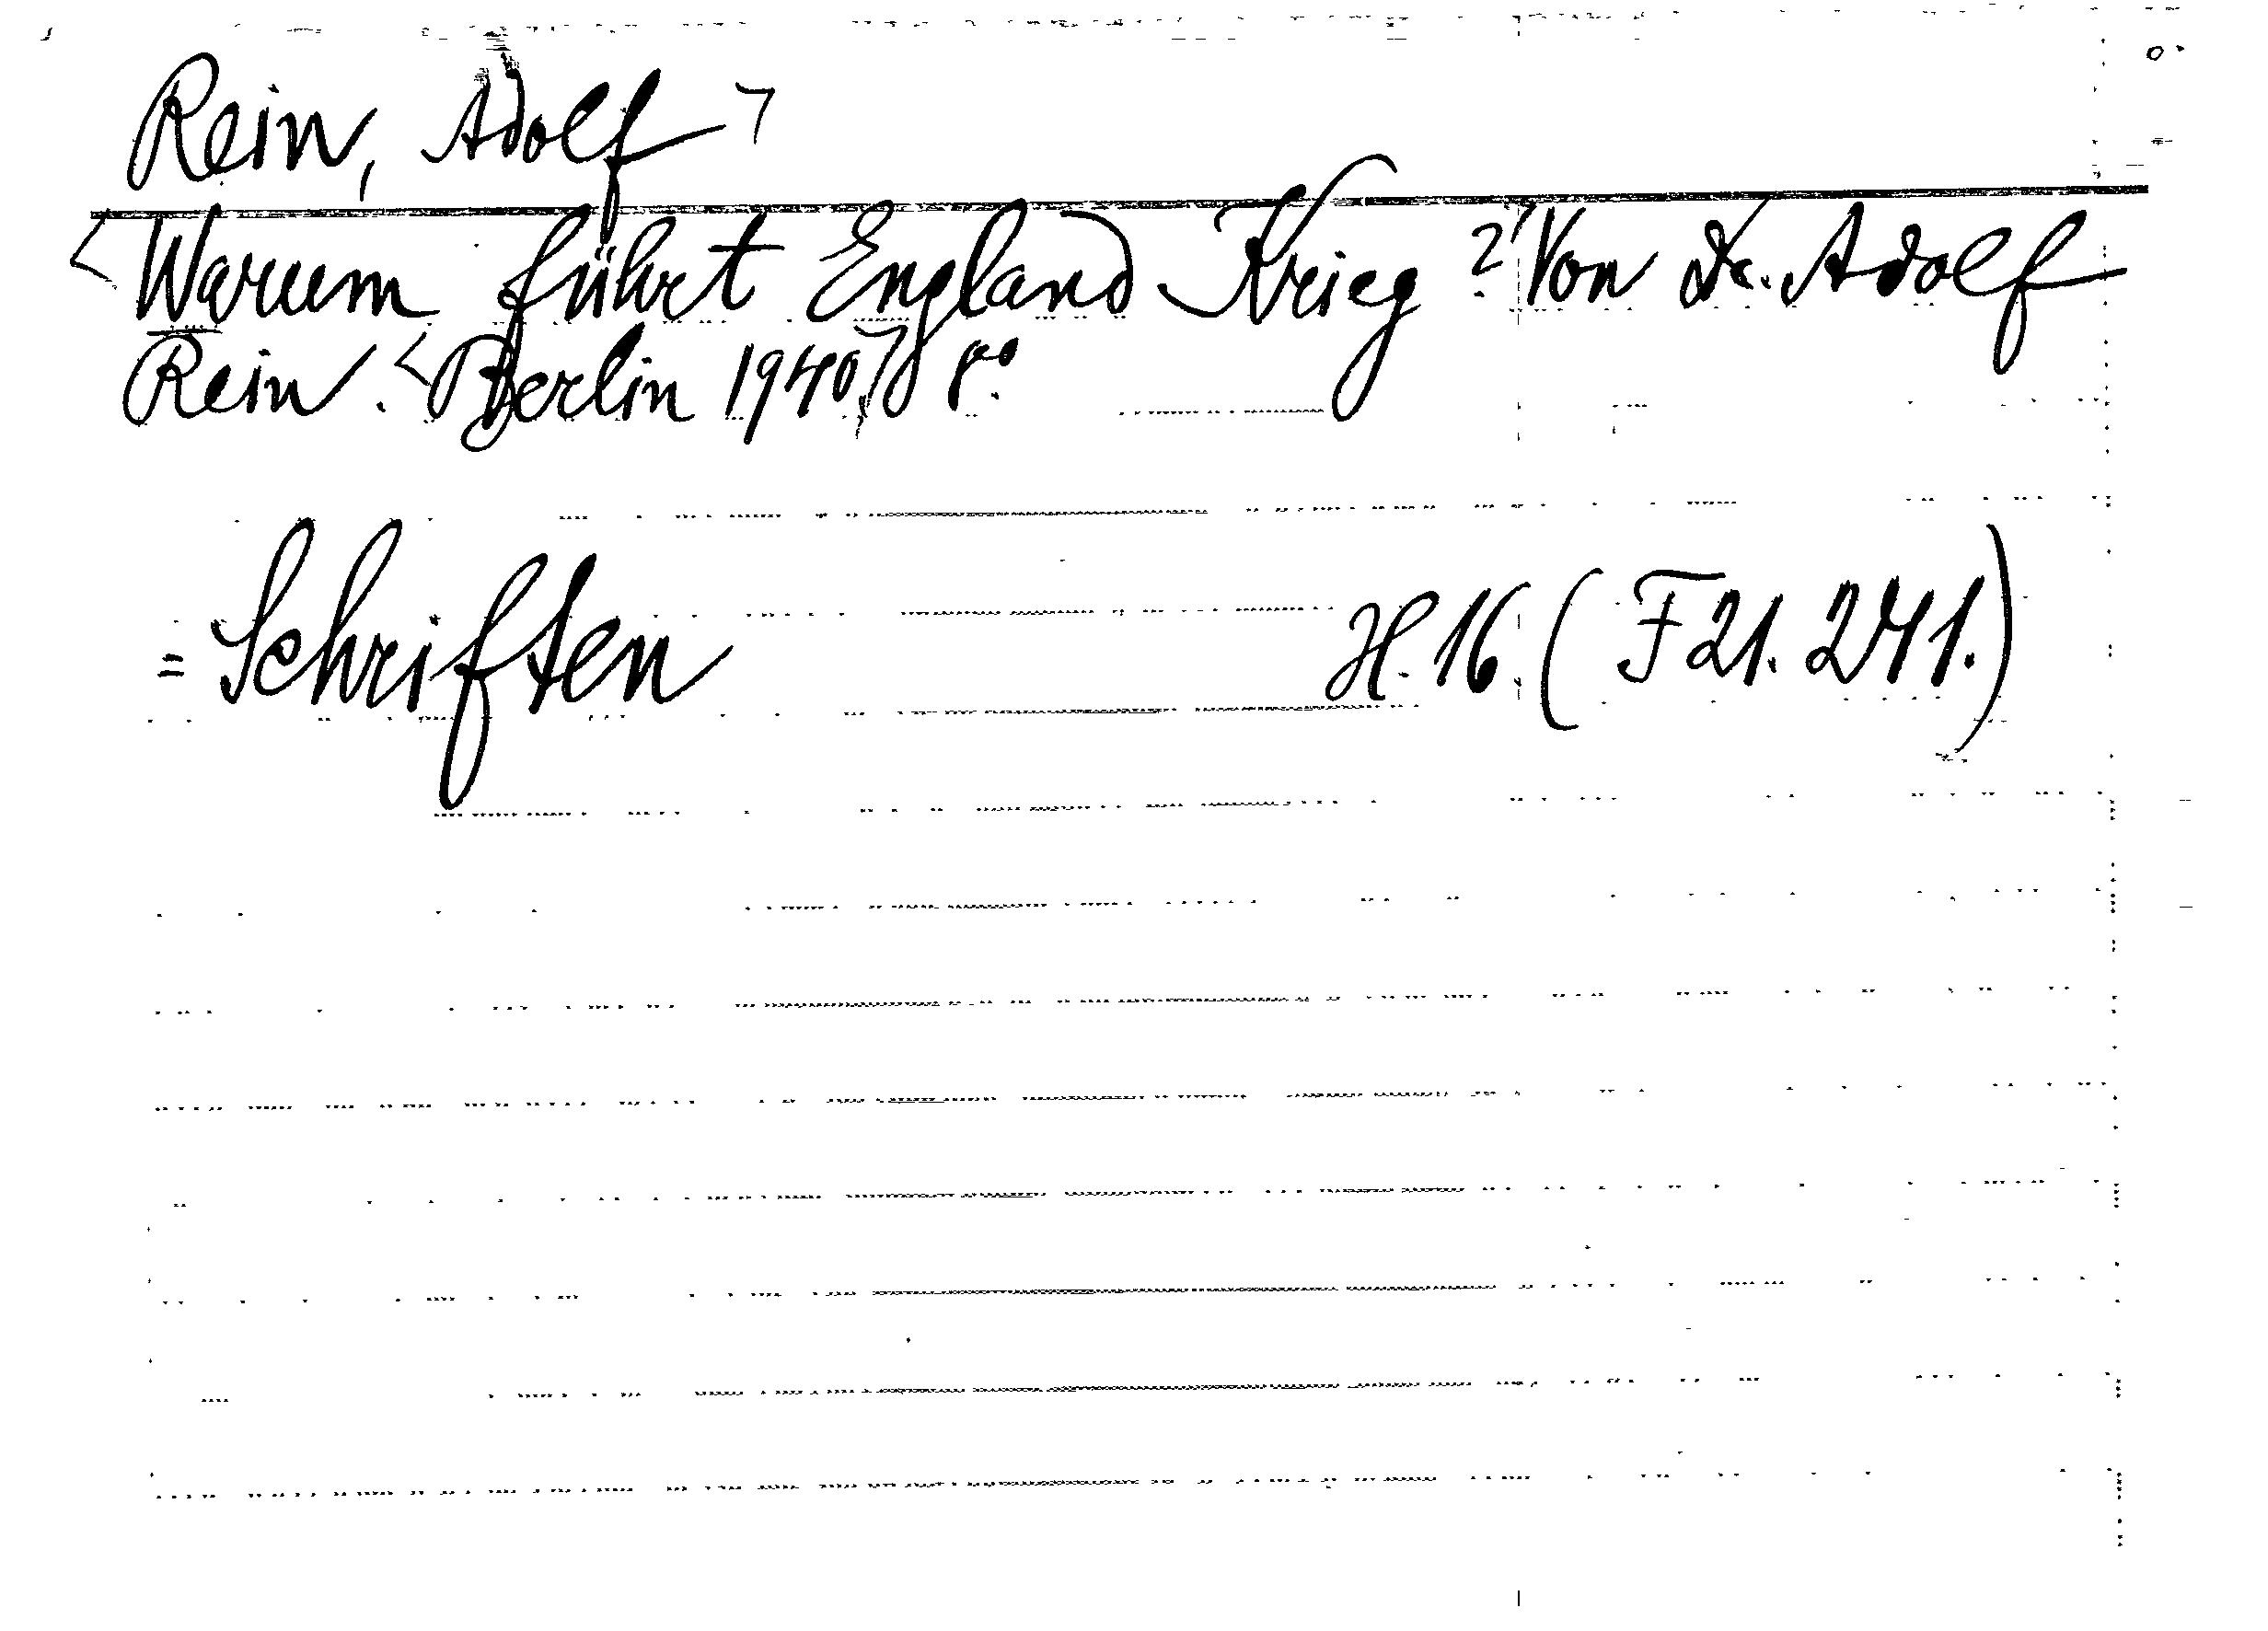 Rein, Adolf>
<Warum führt England Krieg?> Von Dr. Adolf
Rein. <Berlin 1940.> 8°.
= Schriften H. 16. (F 21. 241.)